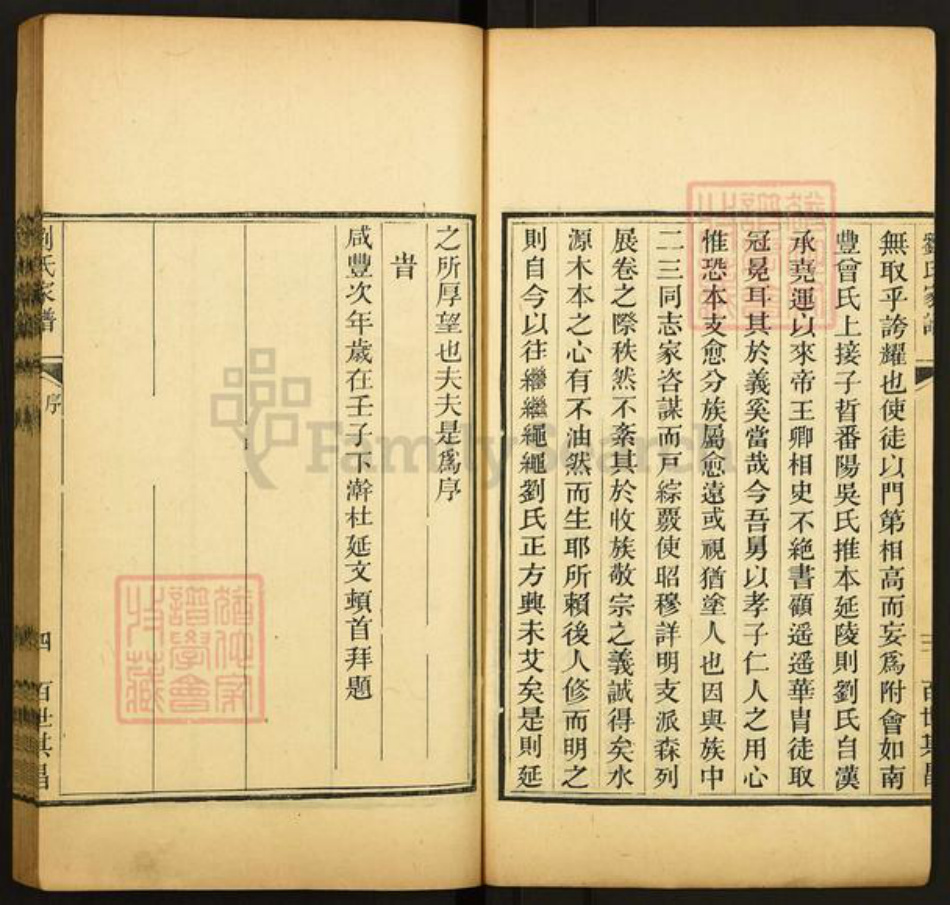 劉氏家譜
三
百世其昌
無取乎誇耀也使徒以門第相高而妄爲附會如南
豐曾氏上接子晳番陽吳氏推本延陵則劉氏自漢
承堯運以來帝王卿相史不絕書顧遥遥華胄徒取
冠冕耳其於義奚當哉今吾舅以孝子仁人之用心
惟恐本支愈分族屬愈遠或視猶塗人也因與族中
二三同志家咨謀而戸綜覈使昭穆詳明支派森列
展卷之際秩然不紊其於收族敬宗之義誠得矣水
源木本之心有不油然而生耶所賴後人修而明之
則自今以往繼繼繩繩劉氏正方興未艾矣是則延
之所厚望也夫夫是爲序
旹
咸豐次年歲在壬子下澣杜延文頓首拜題
劉氏家譜
序
四
百世其昌
FamilySearch
猶他家
譜學會
收藏